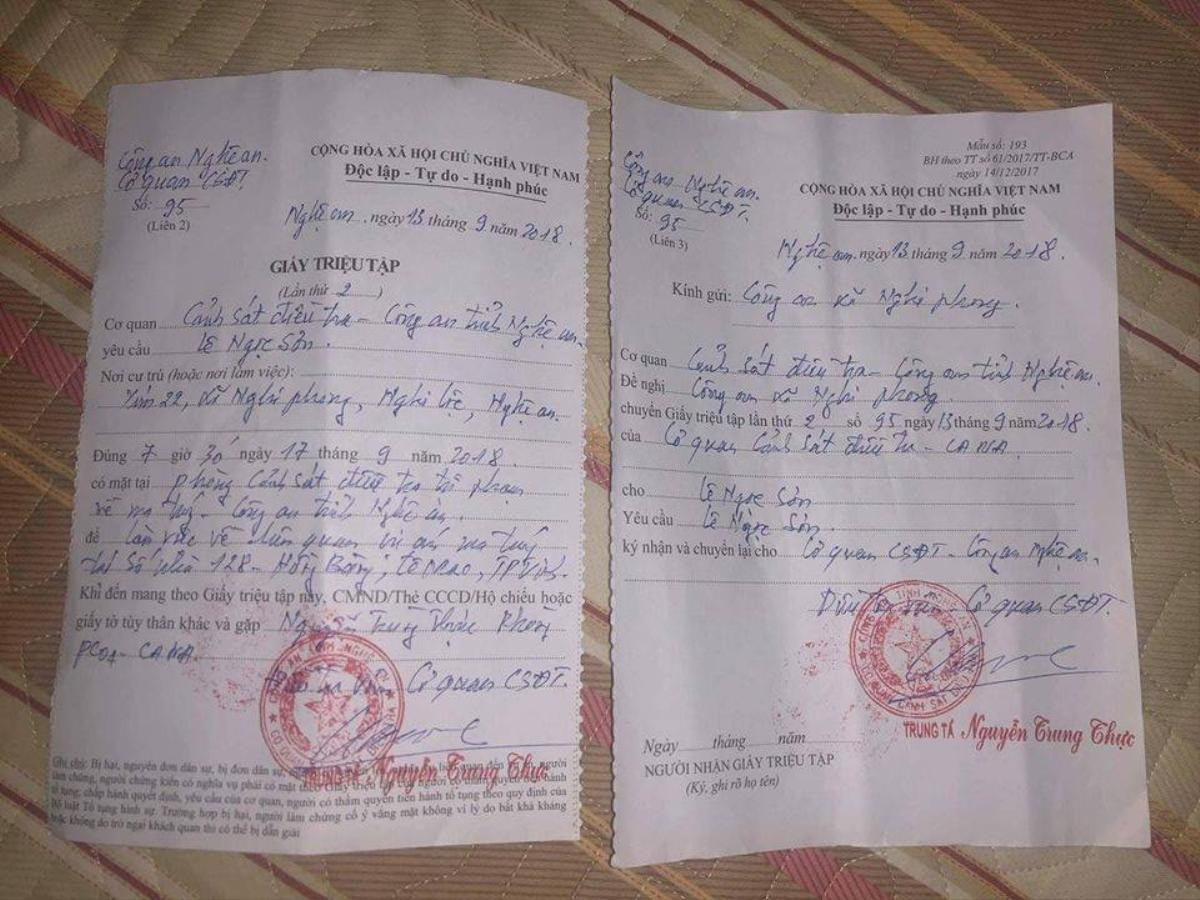 Công an Nghệ an.
Cơ quan CSĐT.
Số: 95
(Liên 2)
CỘNG HÒA XÃ HỘI CHỦ NGHĨA VIỆT NAM
Độc lập - Tự do - Hạnh phúc
Nghệ an. ngày 13 tháng 9 năm 2018.
GIẤY TRIỆU TẬP
(Lần thứ 2)
Cơ quan Cảnh sát điều tra - Công an tỉnh Nghệ an.
yêu cầu Lê Ngọc Sơn.
Nơi cư trú (hoặc nơi làm việc):
Xóm 22, xã Nghi phong, Nghi lộc, Nghệ an.
Đúng 7 giờ 30 ngày 17 tháng 9 năm 2018.
có mặt tại phòng Cảnh sát điều tra tội phạm
về ma túy - Công an tỉnh Nghệ an.
để làm việc về liên quan vụ án ma túy
tại Số nhà 128 - Hồng Bàng, Lê mao, TP Vinh.
Khi đến mang theo Giấy triệu tập này, CMND/Thẻ CCCD/Hộ chiếu hoặc
giấy tờ tùy thân khác và gặp Nguyễn Trung Thực Phòng
PC04 - CANA.
Điều tra viên Cơ quan CSĐT.
TRUNG TÁ Nguyễn Trung Thực
Ghi chú: Bị hại, nguyên đơn dân sự, bị đơn dân sự, liên quan đến vụ án, người
làm chứng, người chứng kiến có nghĩa vụ phải có mặt theo Giấy triệu tập của người có thẩm quyền tiến hành
tố tụng, chấp hành quyết định, yêu cầu của cơ quan, người có thẩm quyền tiến hành tố tụng theo quy định của
Bộ luật Tố tụng hình sự. Trường hợp bị hại, người làm chứng cố ý vắng mặt không vì lý do bất khả kháng
hoặc không do trở ngại khách quan thì có thể bị dẫn giải
Mẫu số: 193
BH theo TT số 61/2017/TT-BCA
ngày 14/12/2017
Công an Nghệ an.
Cơ quan CSĐT.
Số: 95
(Liên 3)
CỘNG HÒA XÃ HỘI CHỦ NGHĨA VIỆT NAM
Độc lập - Tự do - Hạnh phúc
Nghệ an. ngày 13 tháng 9 năm 2018.
Kính gửi: Công an xã Nghi phong.
Cơ quan Cảnh sát điều tra - Công an tỉnh Nghệ an.
Đề nghị Công an xã Nghi phong
chuyển Giấy triệu tập lần thứ 2 số 95 ngày 13 tháng 9 năm 2018.
của Cơ quan Cảnh sát điều tra - CANA.
cho Lê Ngọc Sơn
Yêu cầu Lê Ngọc Sơn.
ký nhận và chuyển lại cho Cơ quan CSĐT - Công an Nghệ an.
Điều tra viên - Cơ quan CSĐT.
TRUNG TÁ Nguyễn Trung Thực
Ngày tháng năm
NGƯỜI NHẬN GIẤY TRIỆU TẬP
(Ký, ghi rõ họ tên)